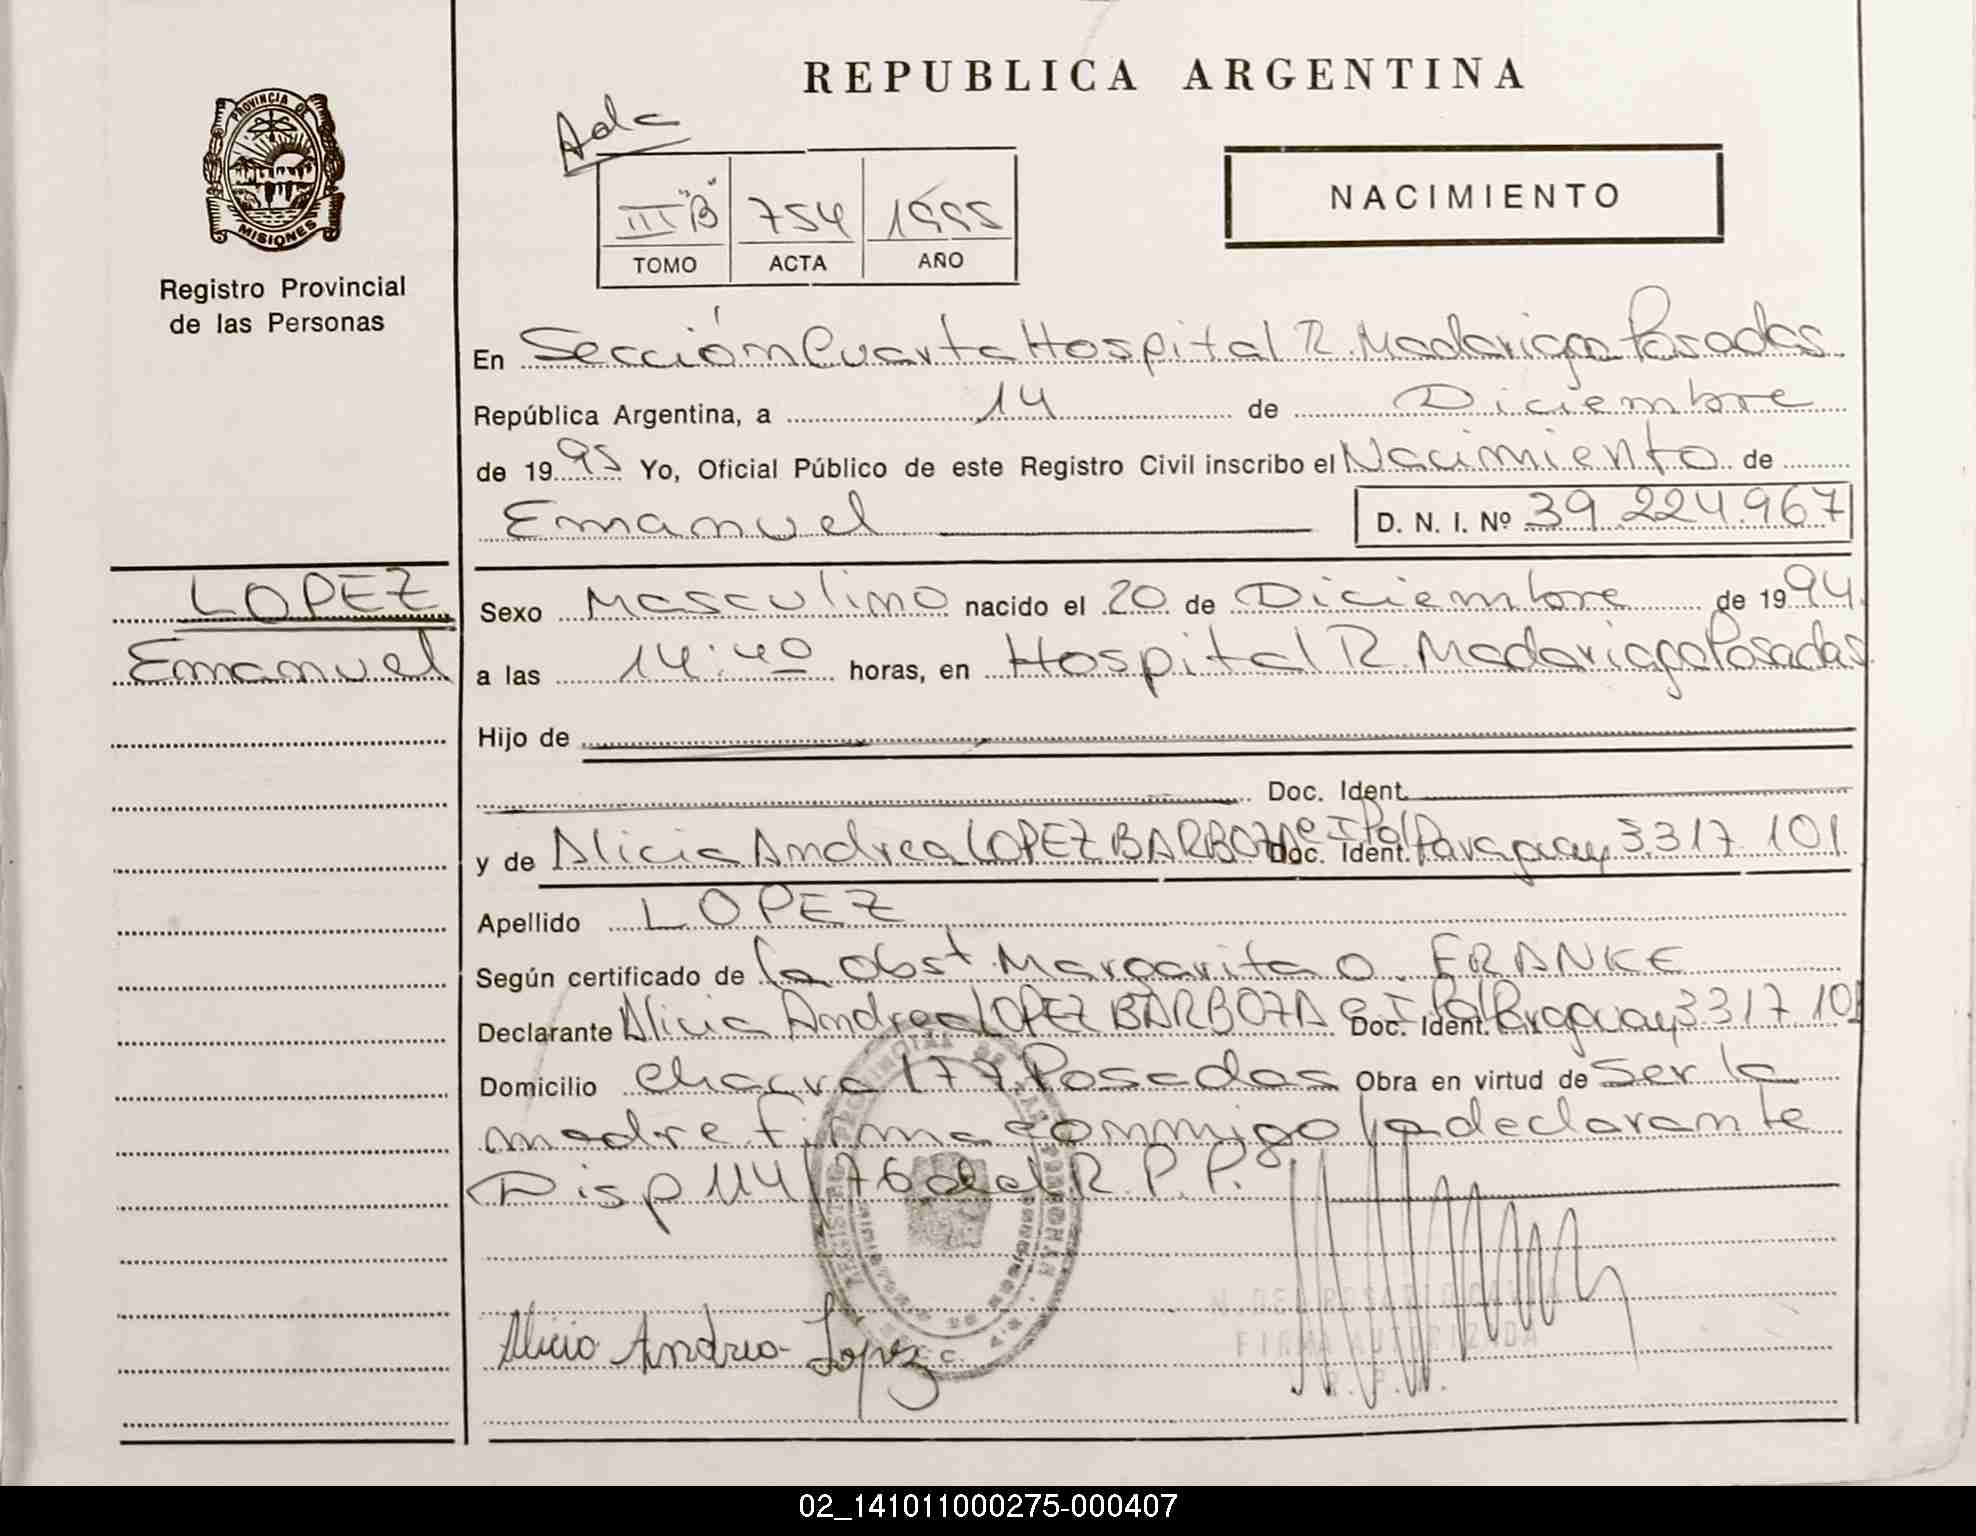 REPUBLICA ARGENTINA
PROVINCIA DE
MISIONES
Registro Provincial
de las Personas
III "B" 754 1995
TOMO ACTA AÑO
NACIMIENTO
En Sección Cuarta Hospital R. Madariaga Posadas
República Argentina, a 14 de Diciembre
de 1995 Yo, Oficial Público de este Registro Civil inscribo el Nacimiento de
Emanuel D. N. I. Nº 39.224.967
LOPEZ
Emanuel
Sexo Masculino nacido el 20 de Diciembre de 1994
a las 14:40 horas, en Hospital R. Madariaga Posadas
Hijo de
Doc. Ident.
y de Alicia Andrea LOPEZ BARBOZA Doc. Ident. C I Pol Paraguay 3.317.101
Apellido LOPEZ
Según certificado de la obst. Margarita O. FRANKE
Declarante Alicia Andrea LOPEZ BARBOZA Doc. Ident. C I Pol Paraguay 3.317.101
Domicilio chacra 177 Posadas Obra en virtud de Ser la
madre firma conmigo la declarante
Disp 114/76 del R.P.P.
FIRMA AUTORIZADA
R.P.P.
Alicia Andrea Lopez
02_141011000275-000407